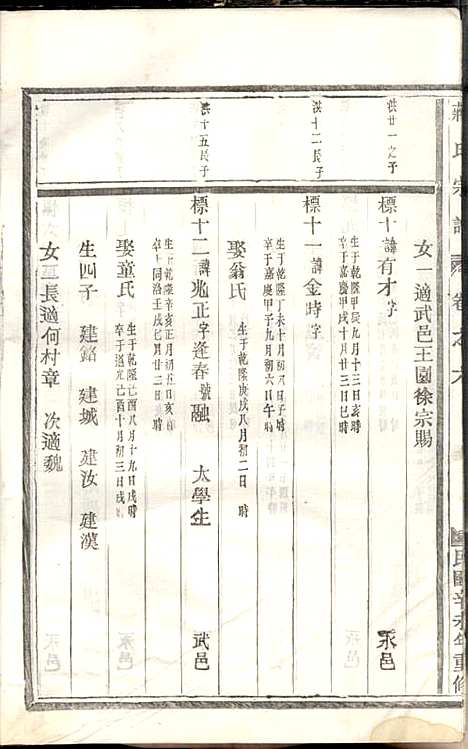 蔣氏宗譜
卷之九
民國辛未年重修
女一適武邑王園徐宗賜
洪廿一之子
標十諱有才字
永邑
生于乾隆甲辰九月十三日亥時
卒于嘉慶甲戌十月三十日巳時
洪十二長子
標十一諱金時字
生于乾隆丁未十月初八日子時
卒于嘉慶甲子九月初六日午時
娶翁氏
生于乾隆庚戌八月初二日 時
洪十五長子
標十二諱兆正字逢春號融
太學生
武邑
生于乾隆辛亥正月初五日亥時
卒于同治壬戌七月廿二日亥時
娶童氏
生于乾隆己酉八月十九日戌時
卒于道光己酉十月初三日戌時
永邑
生四子 建銘 建城 建汝 建漢
女二長適何村章 次適魏